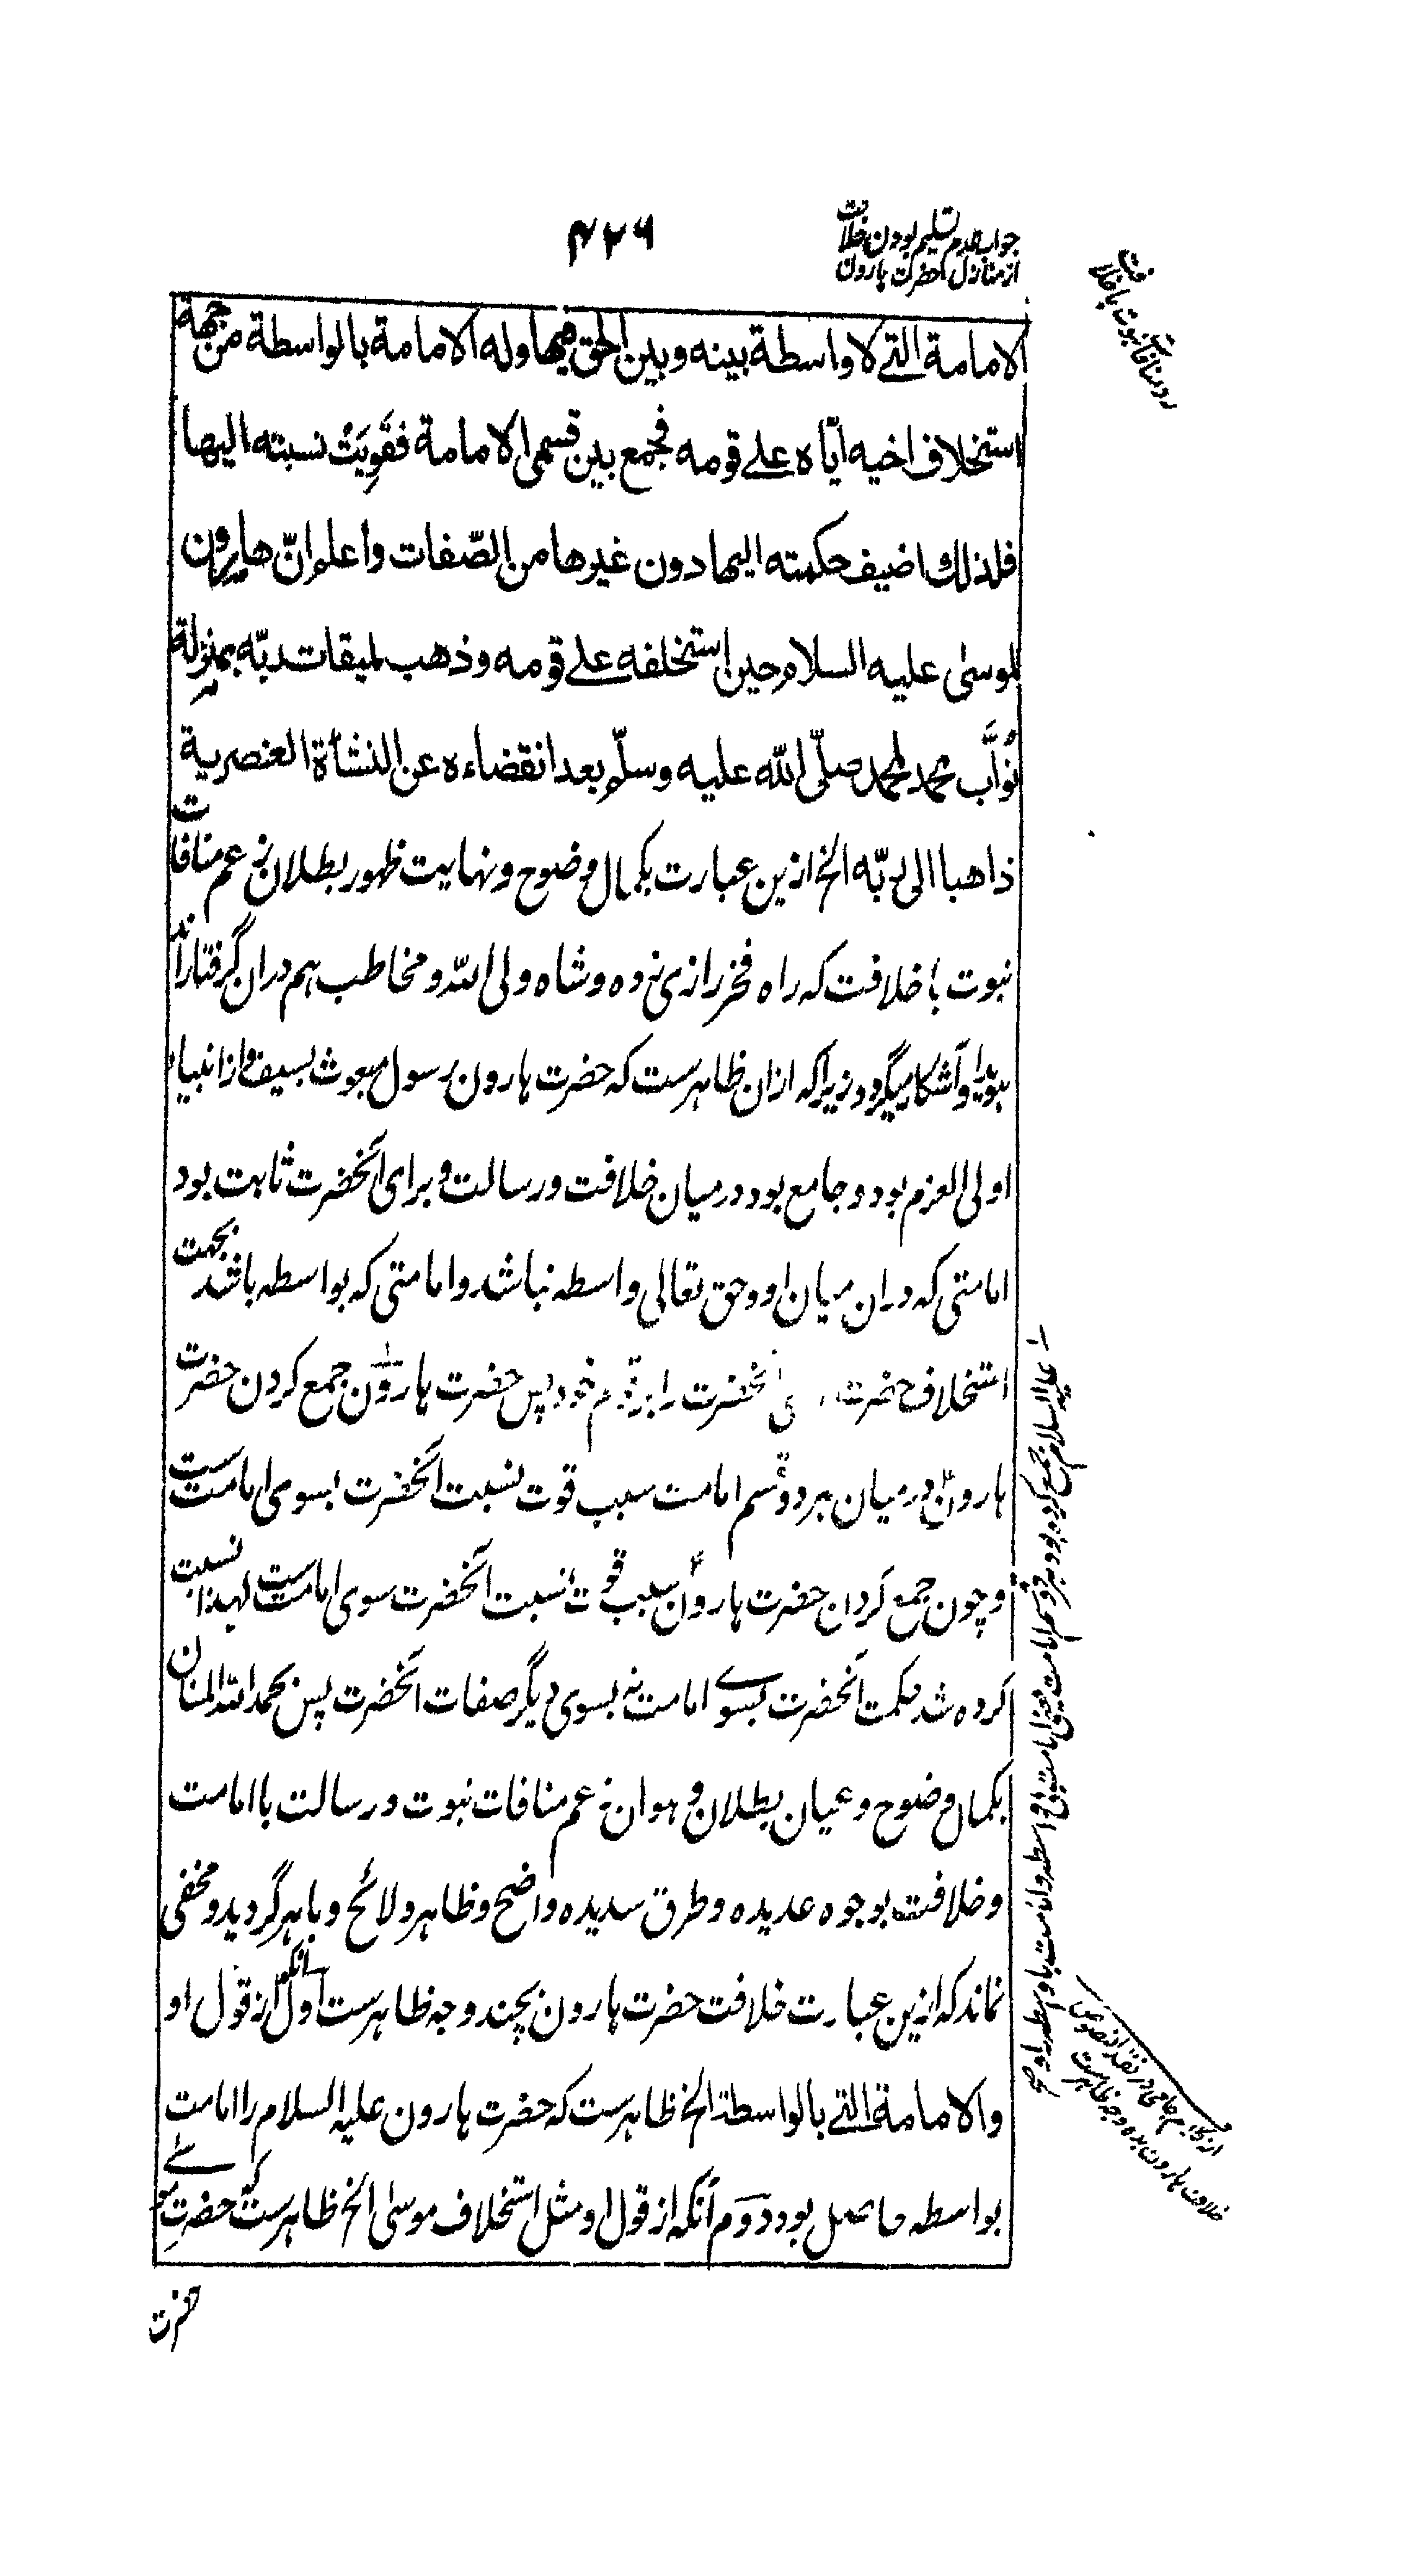 ۴۲۶
جواب عدم تسلیم بودن خلافت
از منازل حضرت هارون
رد منافات نبوت با خلافت
الامامة التی لا واسطة بینه وبین الحق فیها وله الامامة بالواسطة من جهة
استخلاف اخیه ایّاه علی قومه فجمع بین قسمی الامامة فقَوِیَتْ نسبته الیها
فلذلک اضیف حکمته الیها دون غیرها من الصّفات واعلم انّ هارون
لموسی علیه السلام حین استخلفه علی قومه وذهب لمیقات ربّه بمنزلة
نُوَّاب محمد لمحمد صلّی الله علیه وسلّم بعد انقضاءه عن النشأة العنصریة
ذاهبا الی ربّه الخ ازین عبارت بکمال وضوح ونهایت ظهور بطلان زعم منافات
نبوت با خلافت که راه فخر رازی زده وشاه ولی الله ومخاطب هم دران گرفتاراند
هویدا وآشکار میگردد زیراکه ازان ظاهرست که حضرت هارون رسول مبعوث بسیف واز انبیاء
اولی العزم بود وجامع بود درمیان خلافت ورسالت وبرای آنحضرت ثابت بود
امامتی که دران میان او وحق تعالی واسطه نباشد وامامتی که بواسطه باشد بجهت
استخلاف حضرت آنحضرت را بر قوم خود پس حضرت هارون جمع کردن حضرت
هارون درمیان هر دو قسم امامت سبب قوت نسبت آنحضرت بسوی امامت ست
وچون جمع کردن حضرت هارون سبب قوت نسبت آنحضرت سوی امامت ست لهذا نسبت
کرده شد حکمت آنحضرت بسوی امامت نه بسوی دیگر صفات آنحضرت پس بحمد الله المنان
بکمال وضوح وعیان بطلان وهوان زعم منافات نبوت ورسالت با امامت
وخلافت بوجوه عدیده وطرق سدیده واضح وظاهر ولائح وباهر گردید ومخفی
نماند که ازین عبارت خلافت حضرت هارون بچند وجه ظاهرست اول آنکه از قول او
والامامة التی بالواسطة الخ ظاهرست که حضرت هارون علیه السلام را امامت
بواسطه حاصل بود دوم آنکه از قول او مثل استخلاف موسی الخ ظاهرست که حضرت موسی
خلافت هارون بده وجه ظاهرست
حضرت